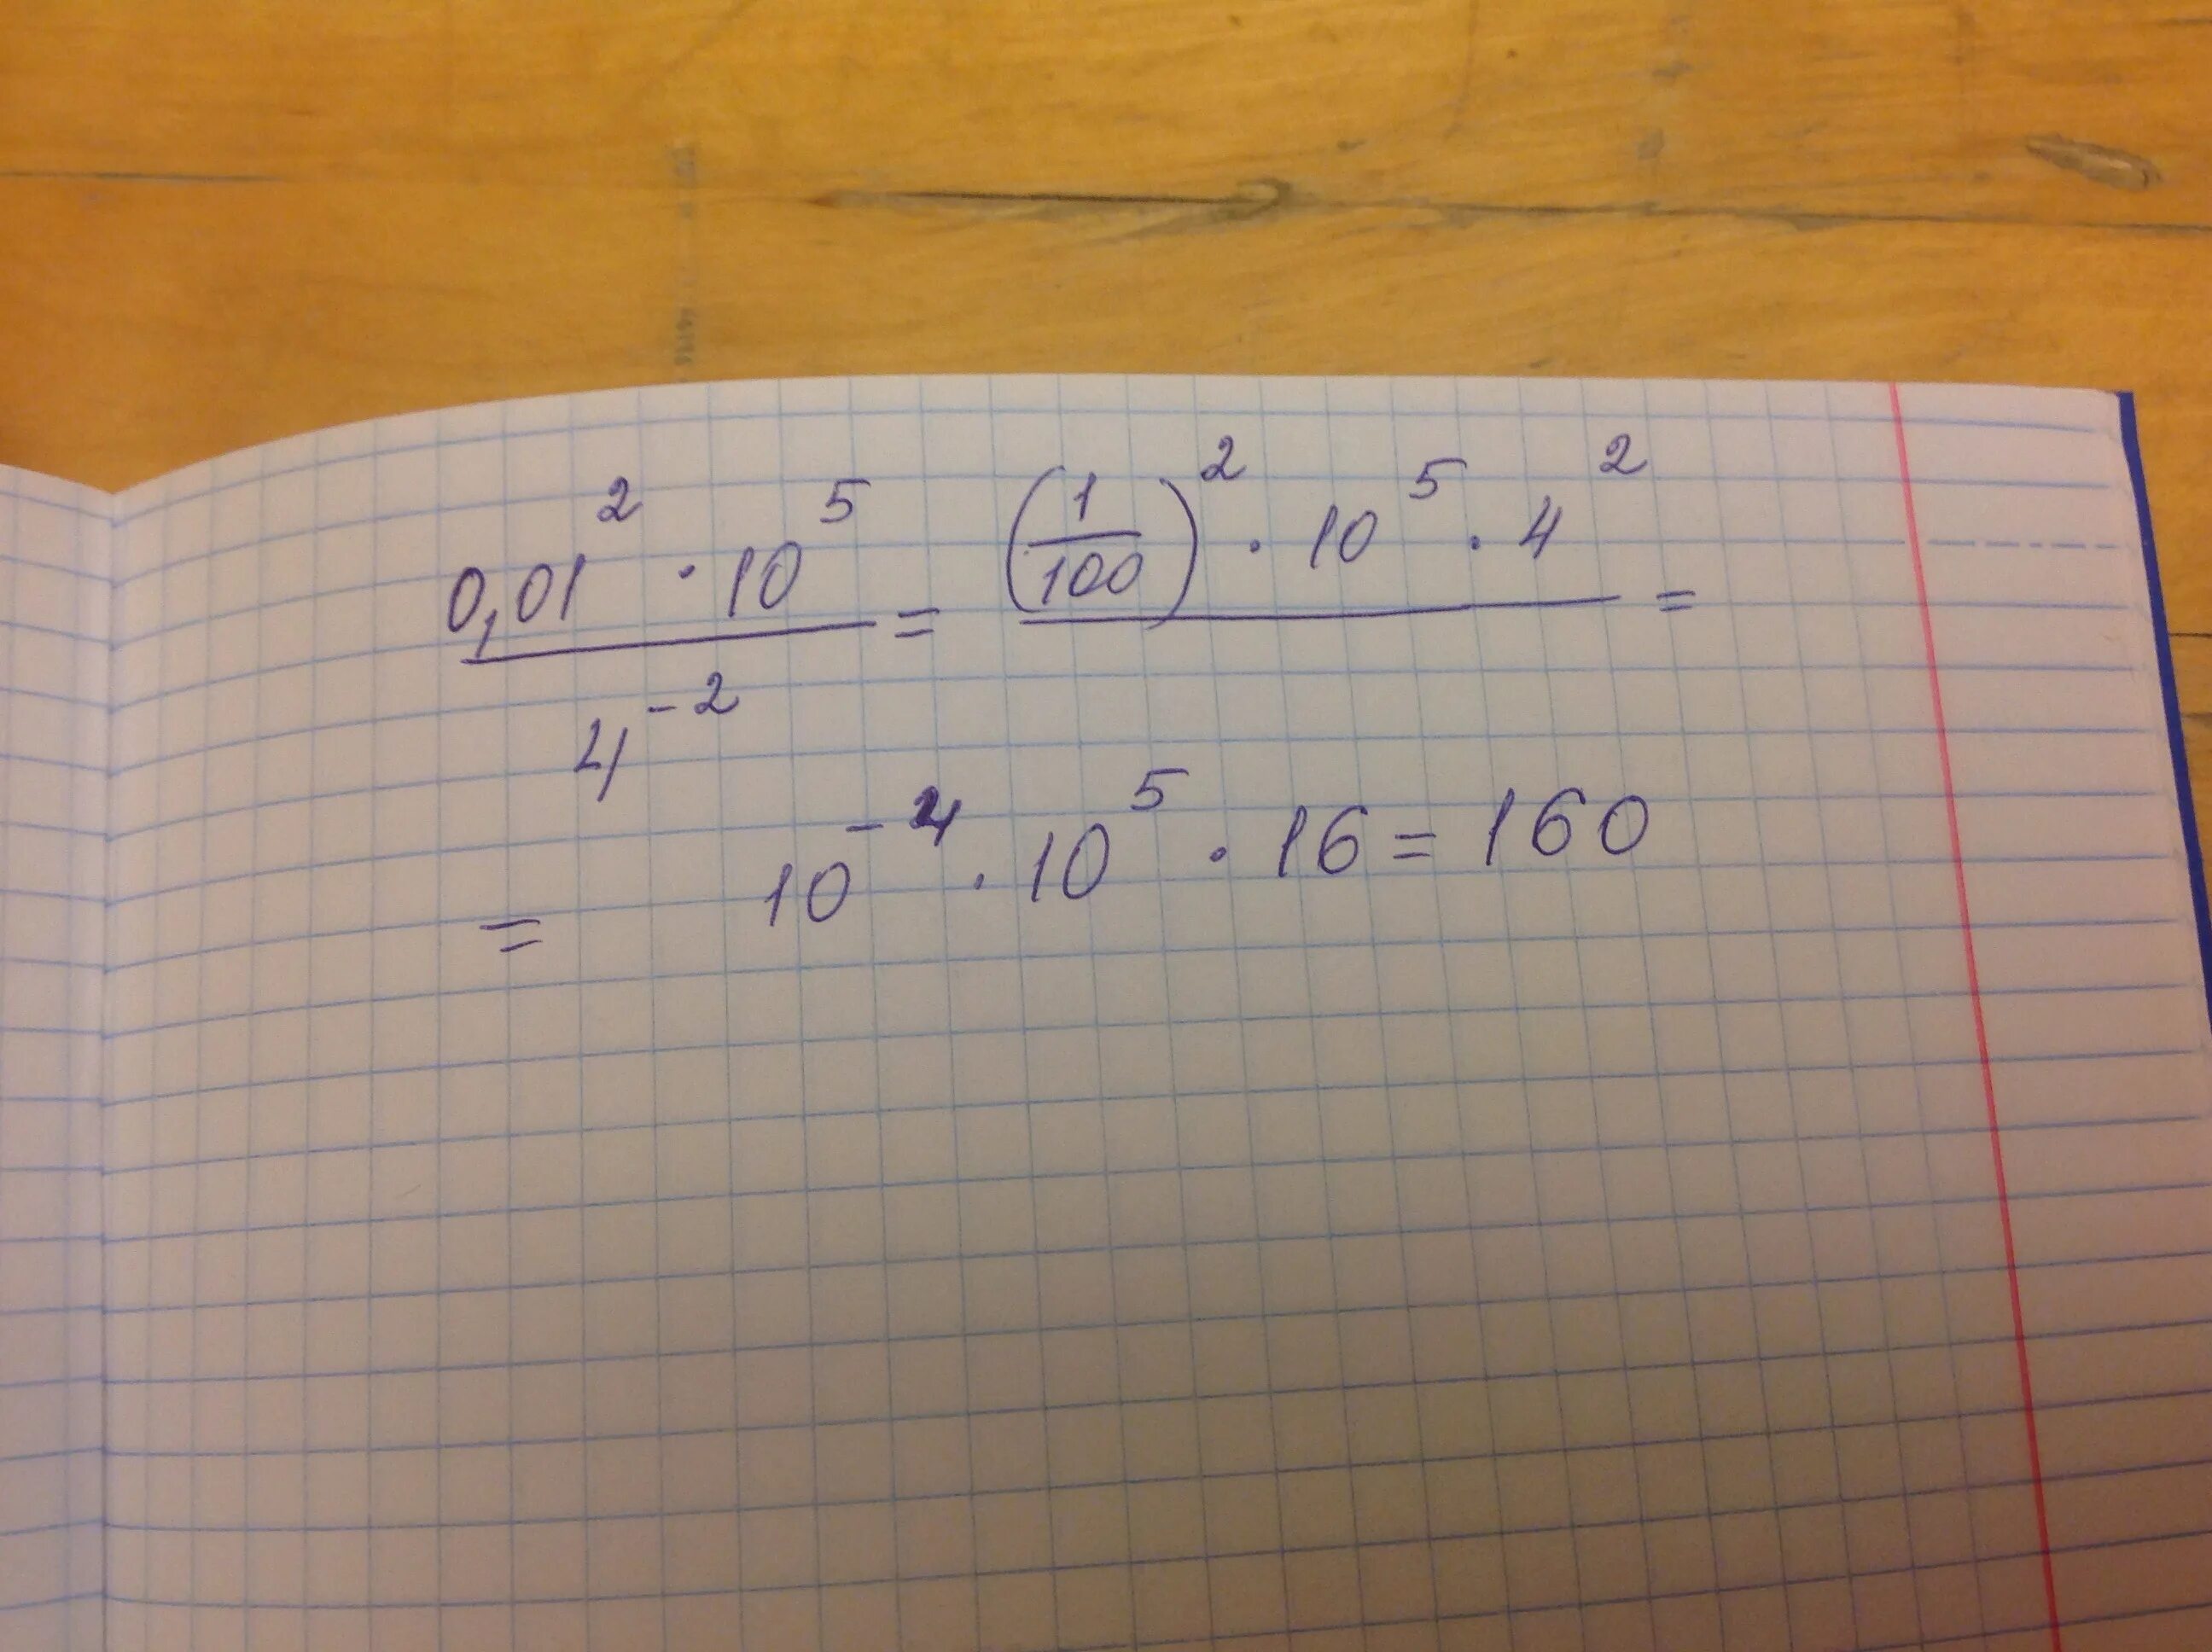 0,01² · 10⁵ / 4⁻² = (1/100)² · 10⁵ · 4² =
= 10⁻⁴ · 10⁵ · 16 = 160